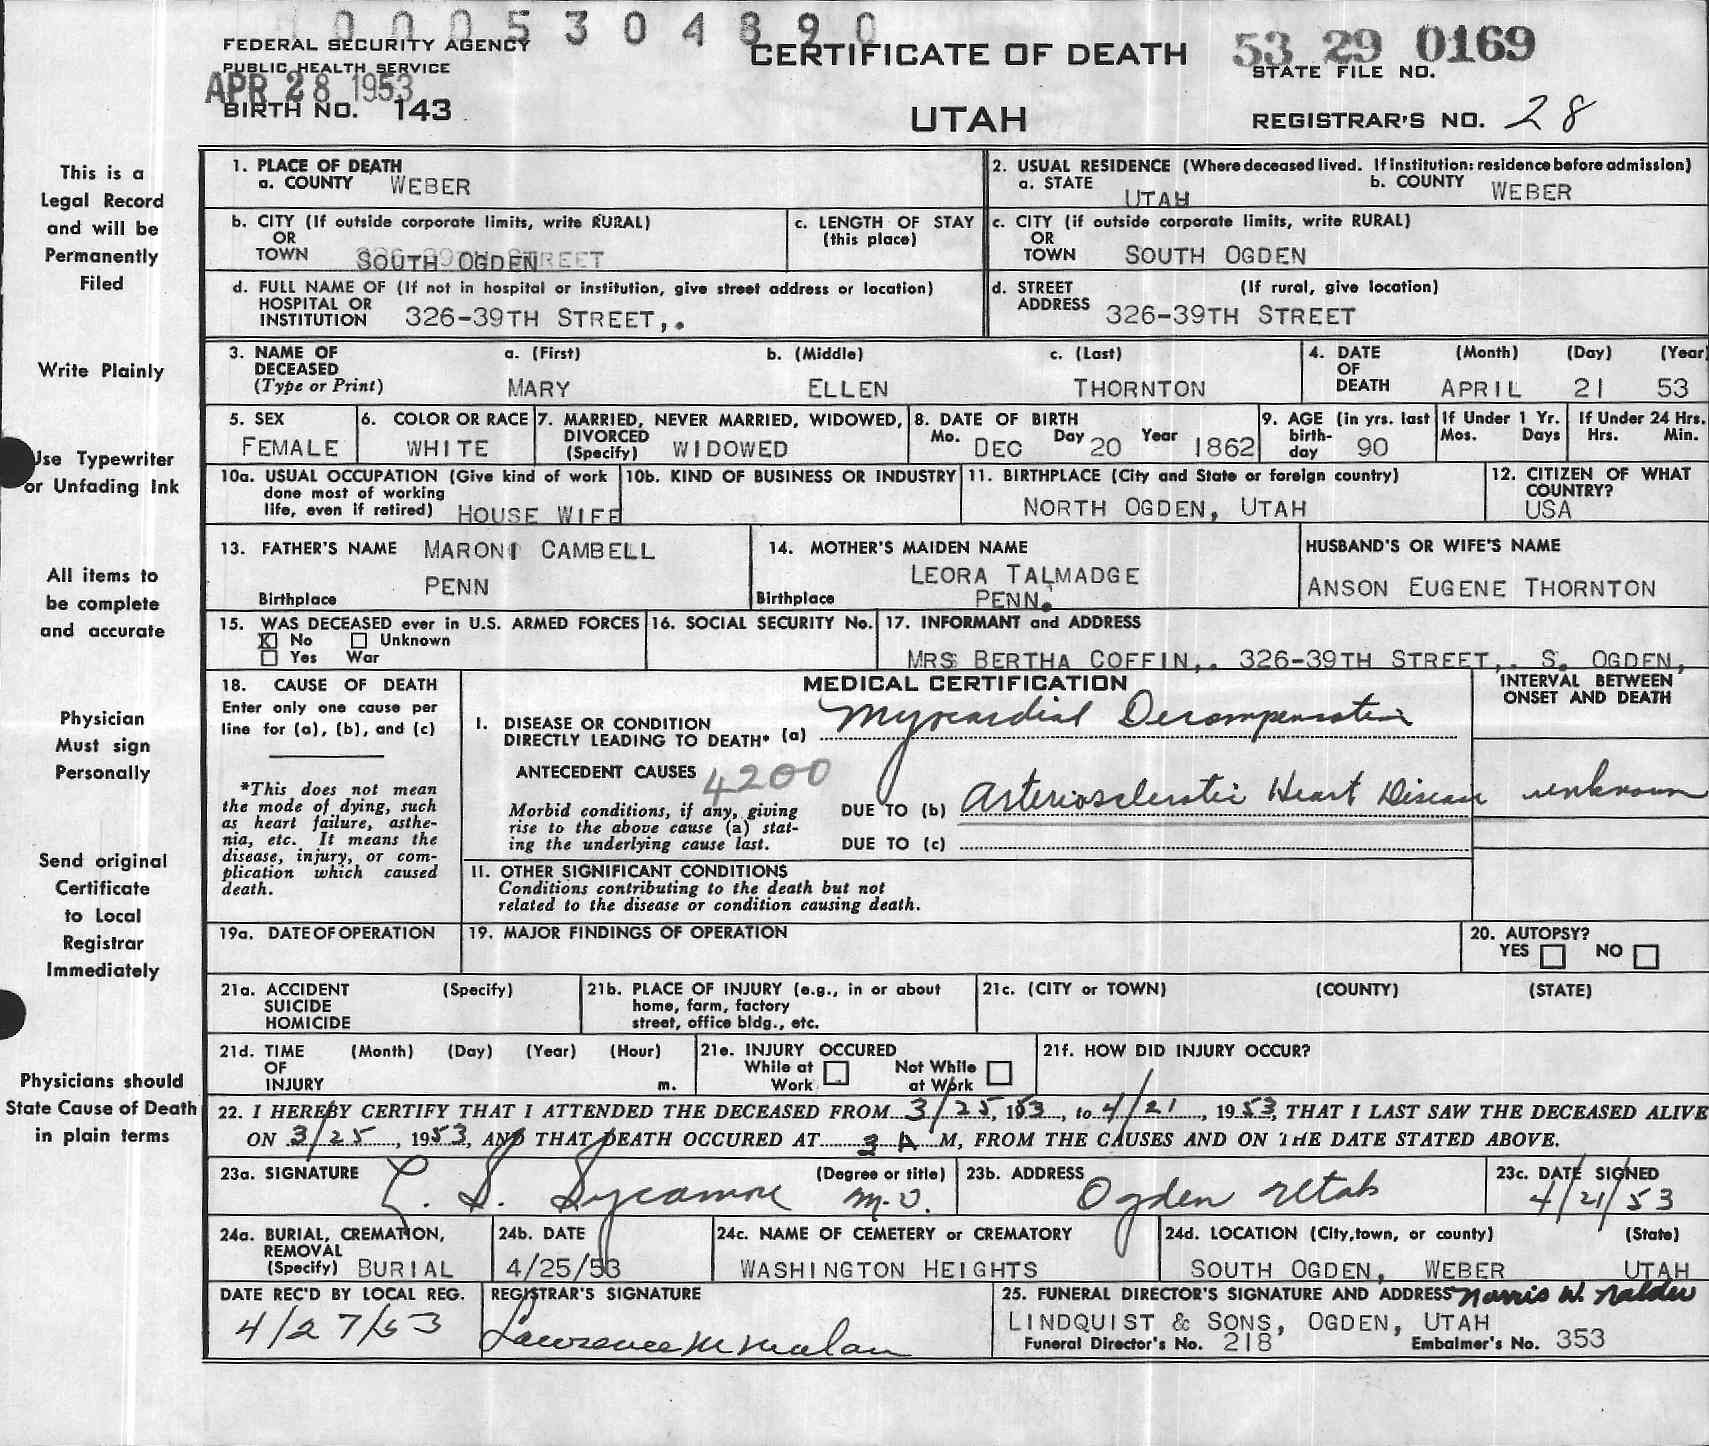 0005304890
FEDERAL SECURITY AGENCY
PUBLIC HEALTH SERVICE
APR 28 1953
BIRTH NO. 143
CERTIFICATE OF DEATH
UTAH
53 29 0169
STATE FILE NO.
REGISTRAR'S NO. 28
This is a
Legal Record
and will be
Permanently
Filed
Write Plainly
Use Typewriter
or Unfading Ink
All items to
be complete
and accurate
Physician
Must sign
Personally
Send original
Certificate
to Local
Registrar
Immediately
Physicians should
State Cause of Death
in plain terms
1. PLACE OF DEATH
a. COUNTY WEBER
2. USUAL RESIDENCE (Where deceased lived. If institution: residence before admission)
a. STATE UTAH b. COUNTY WEBER
b. CITY (If outside corporate limits, write RURAL)
OR
TOWN SOUTH OGDEN
c. LENGTH OF STAY
(this place)
c. CITY (if outside corporate limits, write RURAL)
OR
TOWN SOUTH OGDEN
d. FULL NAME OF (If not in hospital or institution, give street address or location)
HOSPITAL OR
INSTITUTION 326-39TH STREET,.
d. STREET (If rural, give location)
ADDRESS 326-39TH STREET
3. NAME OF DECEASED (Type or Print)
a. (First) b. (Middle) c. (Last)
MARY ELLEN THORNTON
4. DATE OF DEATH (Month) (Day) (Year)
APRIL 21 53
5. SEX
FEMALE
6. COLOR OR RACE
WHITE
7. MARRIED, NEVER MARRIED, WIDOWED,
DIVORCED
(Specify) WIDOWED
8. DATE OF BIRTH
Mo. DEC Day 20 Year 1862
9. AGE (in yrs. last
birth-
day 90
If Under 1 Yr.
Mos. Days
If Under 24 Hrs.
Hrs. Min.
10a. USUAL OCCUPATION (Give kind of work
done most of working
life, even if retired) HOUSE WIFE
10b. KIND OF BUSINESS OR INDUSTRY
11. BIRTHPLACE (City and State or foreign country)
NORTH OGDEN, UTAH
12. CITIZEN OF WHAT
COUNTRY?
USA
13. FATHER'S NAME MARONI CAMBELL
PENN
Birthplace
14. MOTHER'S MAIDEN NAME
LEORA TALMADGE
Birthplace PENN.
HUSBAND'S OR WIFE'S NAME
ANSON EUGENE THORNTON
15. WAS DECEASED ever in U.S. ARMED FORCES
X No Unknown
Yes War
16. SOCIAL SECURITY No.
17. INFORMANT and ADDRESS
MRS BERTHA COFFIN,. 326-39TH STREET,. S. OGDEN,
18. CAUSE OF DEATH
Enter only one cause per
line for (a), (b), and (c)
*This does not mean
the mode of dying, such
as heart failure, asthe-
nia, etc. It means the
disease, injury, or com-
plication which caused
death.
MEDICAL CERTIFICATION
INTERVAL BETWEEN
ONSET AND DEATH
I. DISEASE OR CONDITION
DIRECTLY LEADING TO DEATH* (a) Myocardial Decompensation
ANTECEDENT CAUSES 4200
Morbid conditions, if any, giving
rise to the above cause (a) stat-
ing the underlying cause last.
DUE TO (b) Arteriosclerotic Heart Disease unknown
DUE TO (c)
II. OTHER SIGNIFICANT CONDITIONS
Conditions contributing to the death but not
related to the disease or condition causing death.
19a. DATE OF OPERATION
19. MAJOR FINDINGS OF OPERATION
20. AUTOPSY?
YES NO
21a. ACCIDENT (Specify)
SUICIDE
HOMICIDE
21b. PLACE OF INJURY (e.g., in or about
home, farm, factory
street, office bldg., etc.
21c. (CITY or TOWN) (COUNTY) (STATE)
21d. TIME (Month) (Day) (Year) (Hour)
OF
INJURY m.
21e. INJURY OCCURED
While at Work
Not While at Work
21f. HOW DID INJURY OCCUR?
22. I HEREBY CERTIFY THAT I ATTENDED THE DECEASED FROM 3/25, 1953, to 4/21, 1953, THAT I LAST SAW THE DECEASED ALIVE
ON 3/25, 1953, AND THAT DEATH OCCURED AT 3 A M, FROM THE CAUSES AND ON THE DATE STATED ABOVE.
23a. SIGNATURE (Degree or title)
L. S. Sycamore M.D.
23b. ADDRESS
Ogden Utah
23c. DATE SIGNED
4/21/53
24a. BURIAL, CREMATION,
REMOVAL
(Specify) BURIAL
24b. DATE
4/25/53
24c. NAME OF CEMETERY or CREMATORY
WASHINGTON HEIGHTS
24d. LOCATION (City, town, or county) (State)
SOUTH OGDEN, WEBER UTAH
DATE REC'D BY LOCAL REG.
4/27/53
REGISTRAR'S SIGNATURE
Lawrence M Malan
25. FUNERAL DIRECTOR'S SIGNATURE AND ADDRESS Norris W. Nalder
LINDQUIST & SONS, OGDEN, UTAH
Funeral Director's No. 218 Embalmer's No. 353